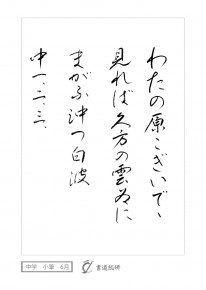 わたの原こぎいで、
見れば久方の雲ゐに
まがふ沖つ白波
中一、二、三、
中学 小筆 6月
書道総研